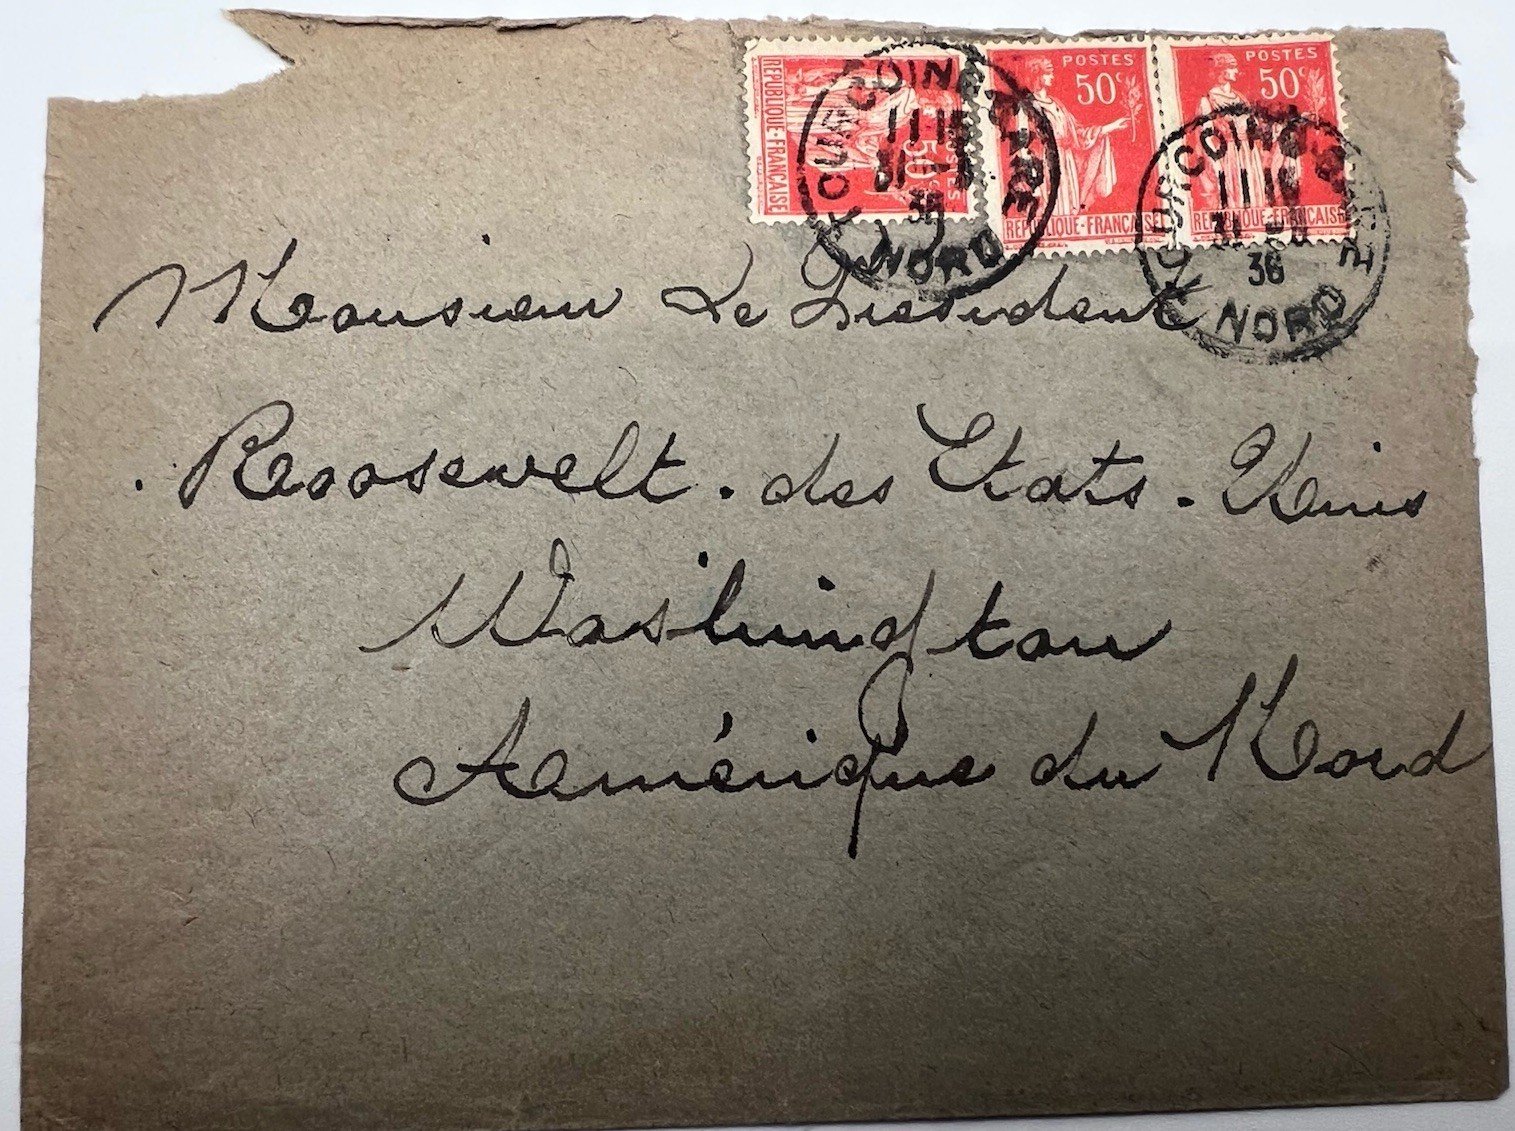 RÉPUBLIQUE-FRANÇAISE
50c
POSTES
POSTES
50c
RÉPUBLIQUE-FRANÇAISE
POSTES
50c
RÉPUBLIQUE-FRANÇAISE
TOURCOING GARE
11 15
31
36
NORD
TOURCOING GARE
11 15
31
36
NORD
Monsieur Le President
Roosevelt. des Etats. Unis
Washington
Amérique du Nord